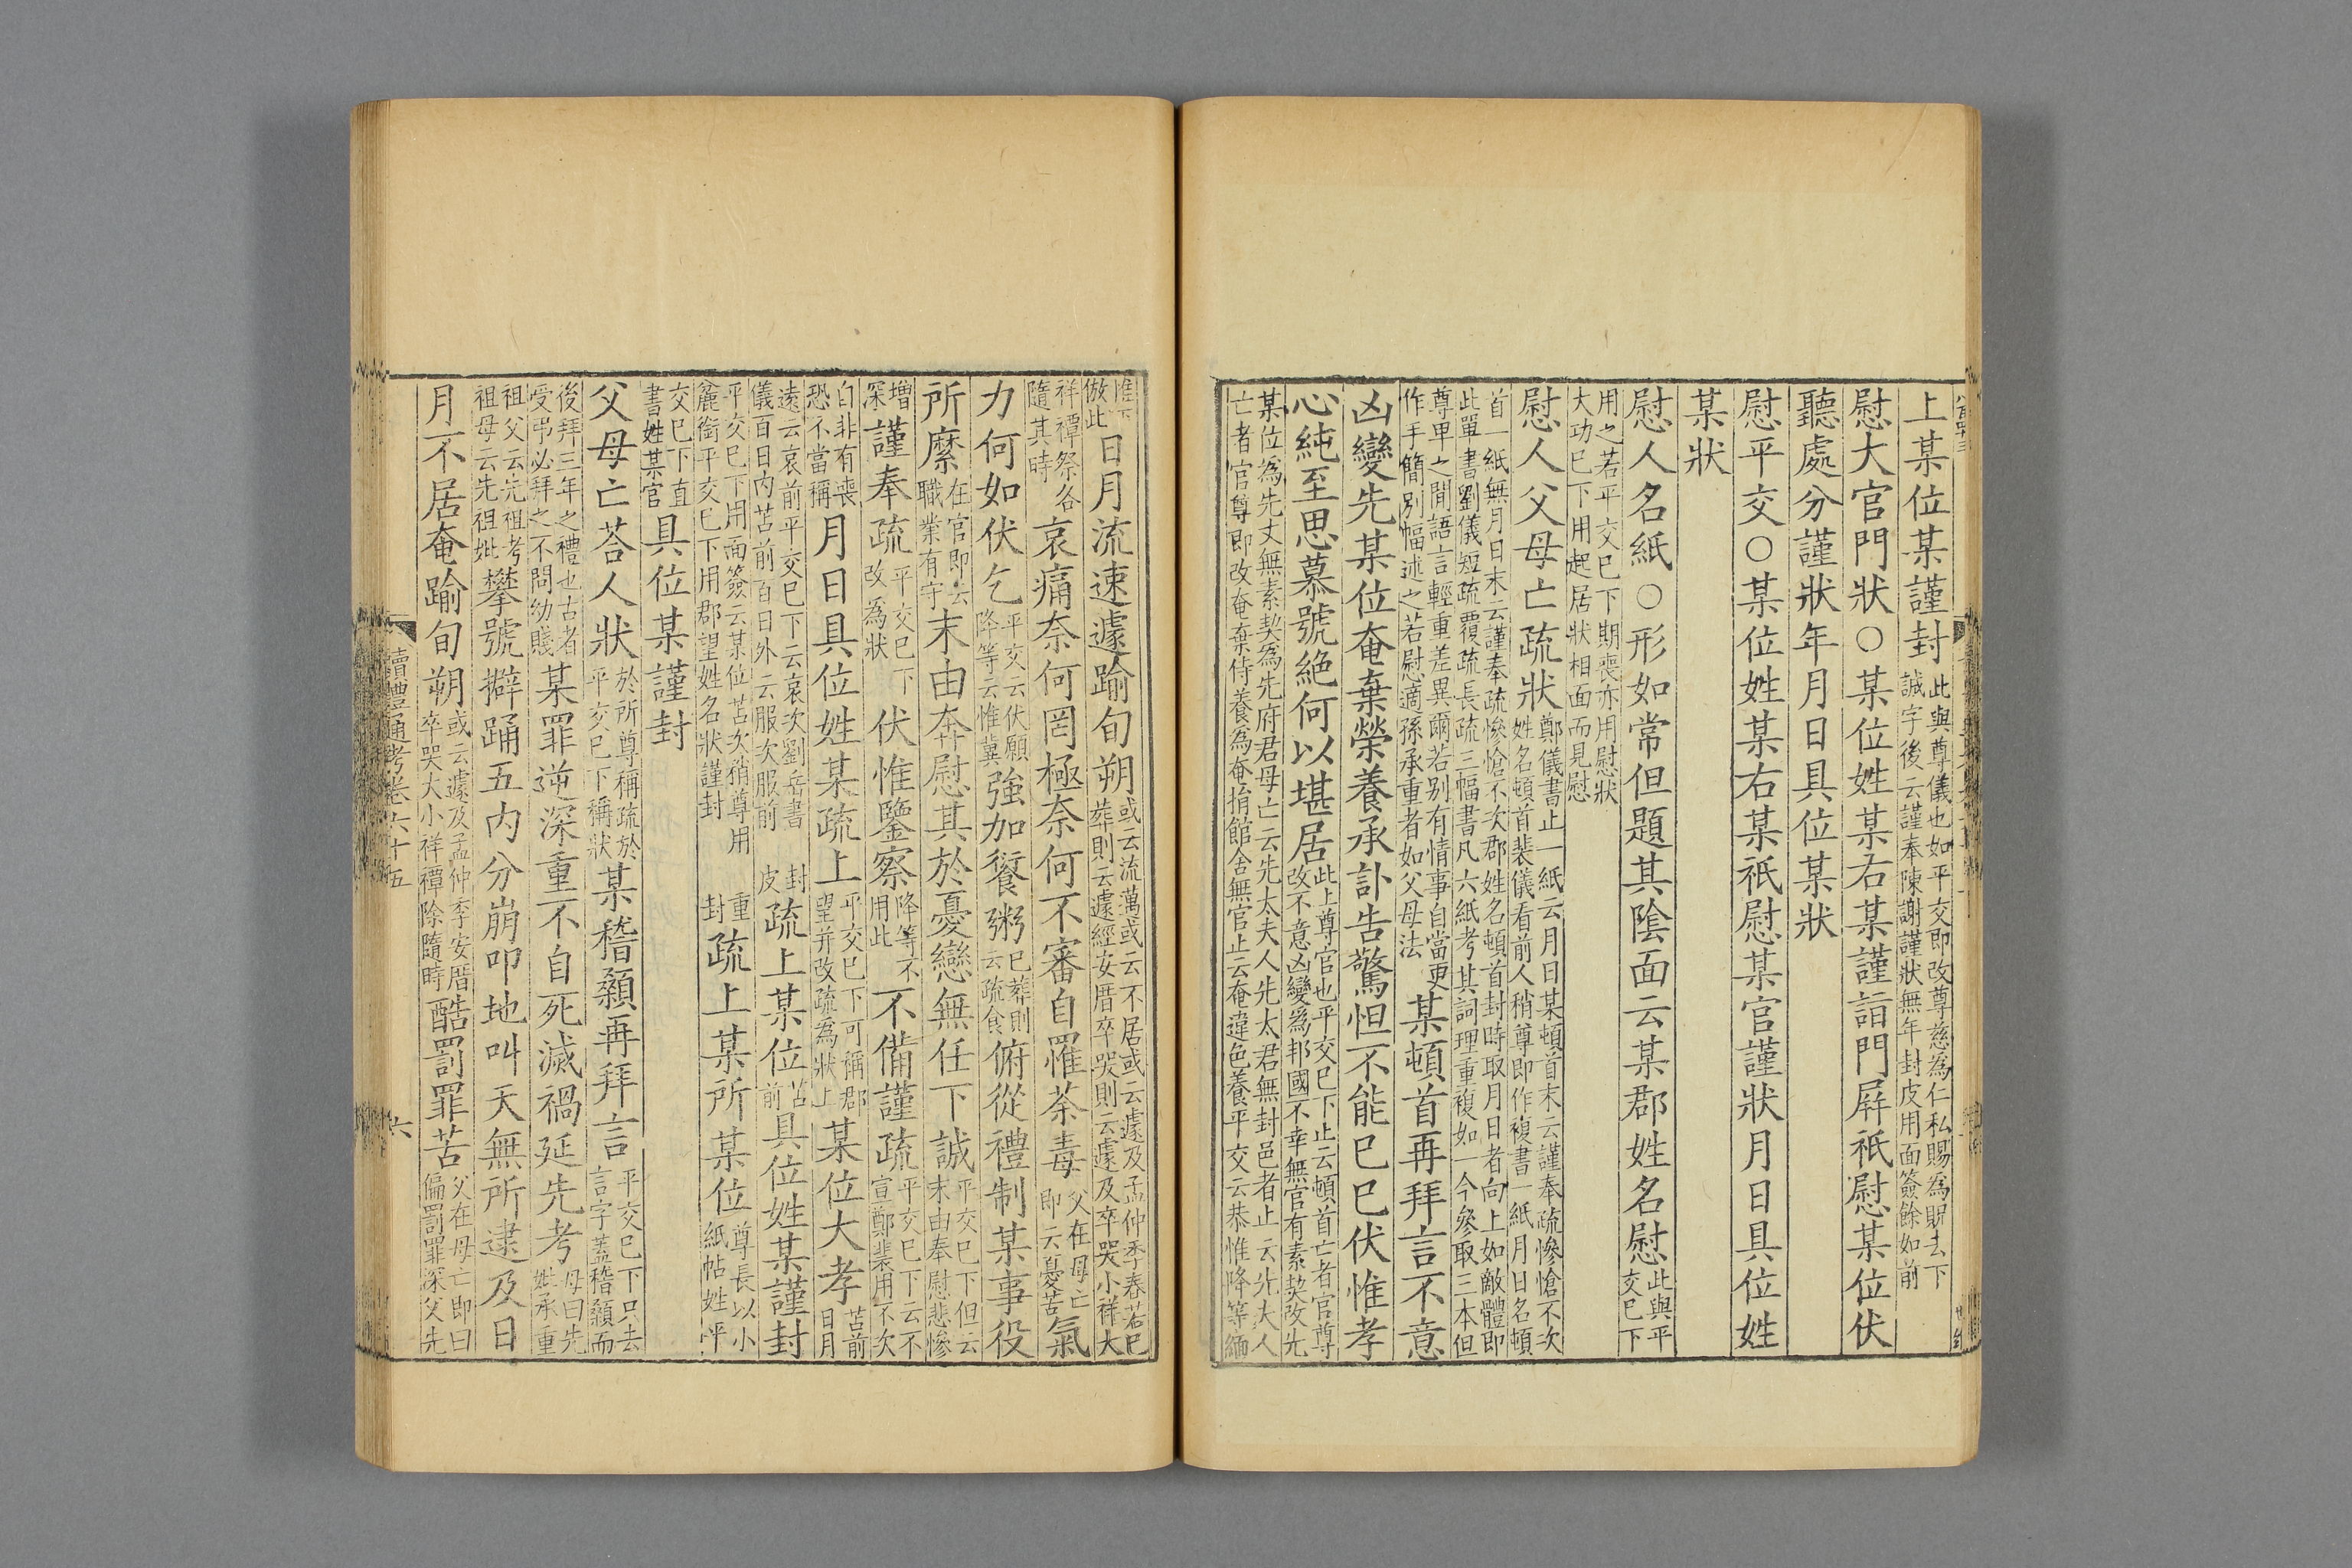 上某位某謹封此與尊儀也如平交即改尊慈為仁私賜為貺去下誠字後云謹奉陳謝謹狀無年封皮用面簽餘如前
慰大官門狀○某位姓某右某謹詣門屛祇慰某位伏
聽處分謹狀年月日具位某狀
慰平交○某位姓某右某祇慰某官謹狀月日具位姓
某狀
慰人名紙○形如常但題其陰面云某郡姓名慰此與平交已下
用之若平交已下期喪亦用慰狀大功已下用起居狀相面而見慰
慰人父母亡疏狀鄭儀書止一紙云月日某頓首末云謹奉疏慘愴不次姓名頓首裴儀看前人稍尊即作複書一紙月日名頓
首一紙無月日末云謹奉疏慘愴不次郡姓名頓首封時取月日者向上如敵體即此單書劉儀短疏覆疏長疏三幅書凡六紙考其詞理重複如一今參取三本但
尊卑之間語言輕重差異爾若別有情事自當更作手簡別幅述之若慰適孫承重者如父母法某頓首再拜言不意
凶變先某位奄棄榮養承訃告驚怛不能已已伏惟孝
心純至思慕號絕何以堪居此上尊官也平交已下止云頓首亡者官尊改不意凶變為邦國不幸無官有素契改先
某位為先丈無素契為先府君母亡云先太夫人先太君無封邑者止云先大人亡者官尊即改奄棄侍養為奄捐館舍無官止云奄違色養平交云恭惟降等緬
惟下倣此日月流速遽踰旬朔或云流邁或云不居或云遽及孟仲季春若已葬則云遽經安厝卒哭則云遽及卒哭小祥大
祥禫祭各隨其時哀痛奈何罔極奈何不審自罹荼毒父在母亡即云憂苦氣
力何如伏乞平交云伏願降等云惟冀強加餐粥已葬則云疏食俯從禮制某事役
所縻在官即云職業有守末由奔慰其於憂戀無任下誠平交已下但云末由奉慰悲慘
增深謹奉疏平交已下改為狀伏惟鑒察降等不用此不備謹疏平交已下云不宣鄭裴用不次
自非有喪恐不當稱月日具位姓某疏上平交已下可稱郡望并改疏為狀上某位大孝苫前日月
遠云哀前平交已下云哀次劉岳書儀百日內苫前百日外云服次服前封皮疏上某位苫前具位姓某謹封
平交已下用面簽云某位苫次稍尊用麄銜平交已下用郡望姓名狀謹封重封疏上某所某位尊長以小紙帖姓平
交已下直書姓某官具位某謹封
父母亡荅人狀於所尊稱疏於平交已下稱狀某稽顙再拜言平交已下只去言字蓋稽顙而
後拜三年之禮也古者受弔必拜之不問幼賤某罪逆深重不自死滅禍延先考母曰先妣承重
祖父云先祖考祖母云先祖妣攀號擗踊五內分崩叩地叫天無所逮及日
月不居奄踰旬朔或云遽及孟仲季安厝卒哭大小祥禫除隨時酷罰罪苦父在母亡即曰偏罰罪深父先
讀禮通考卷六十五
六